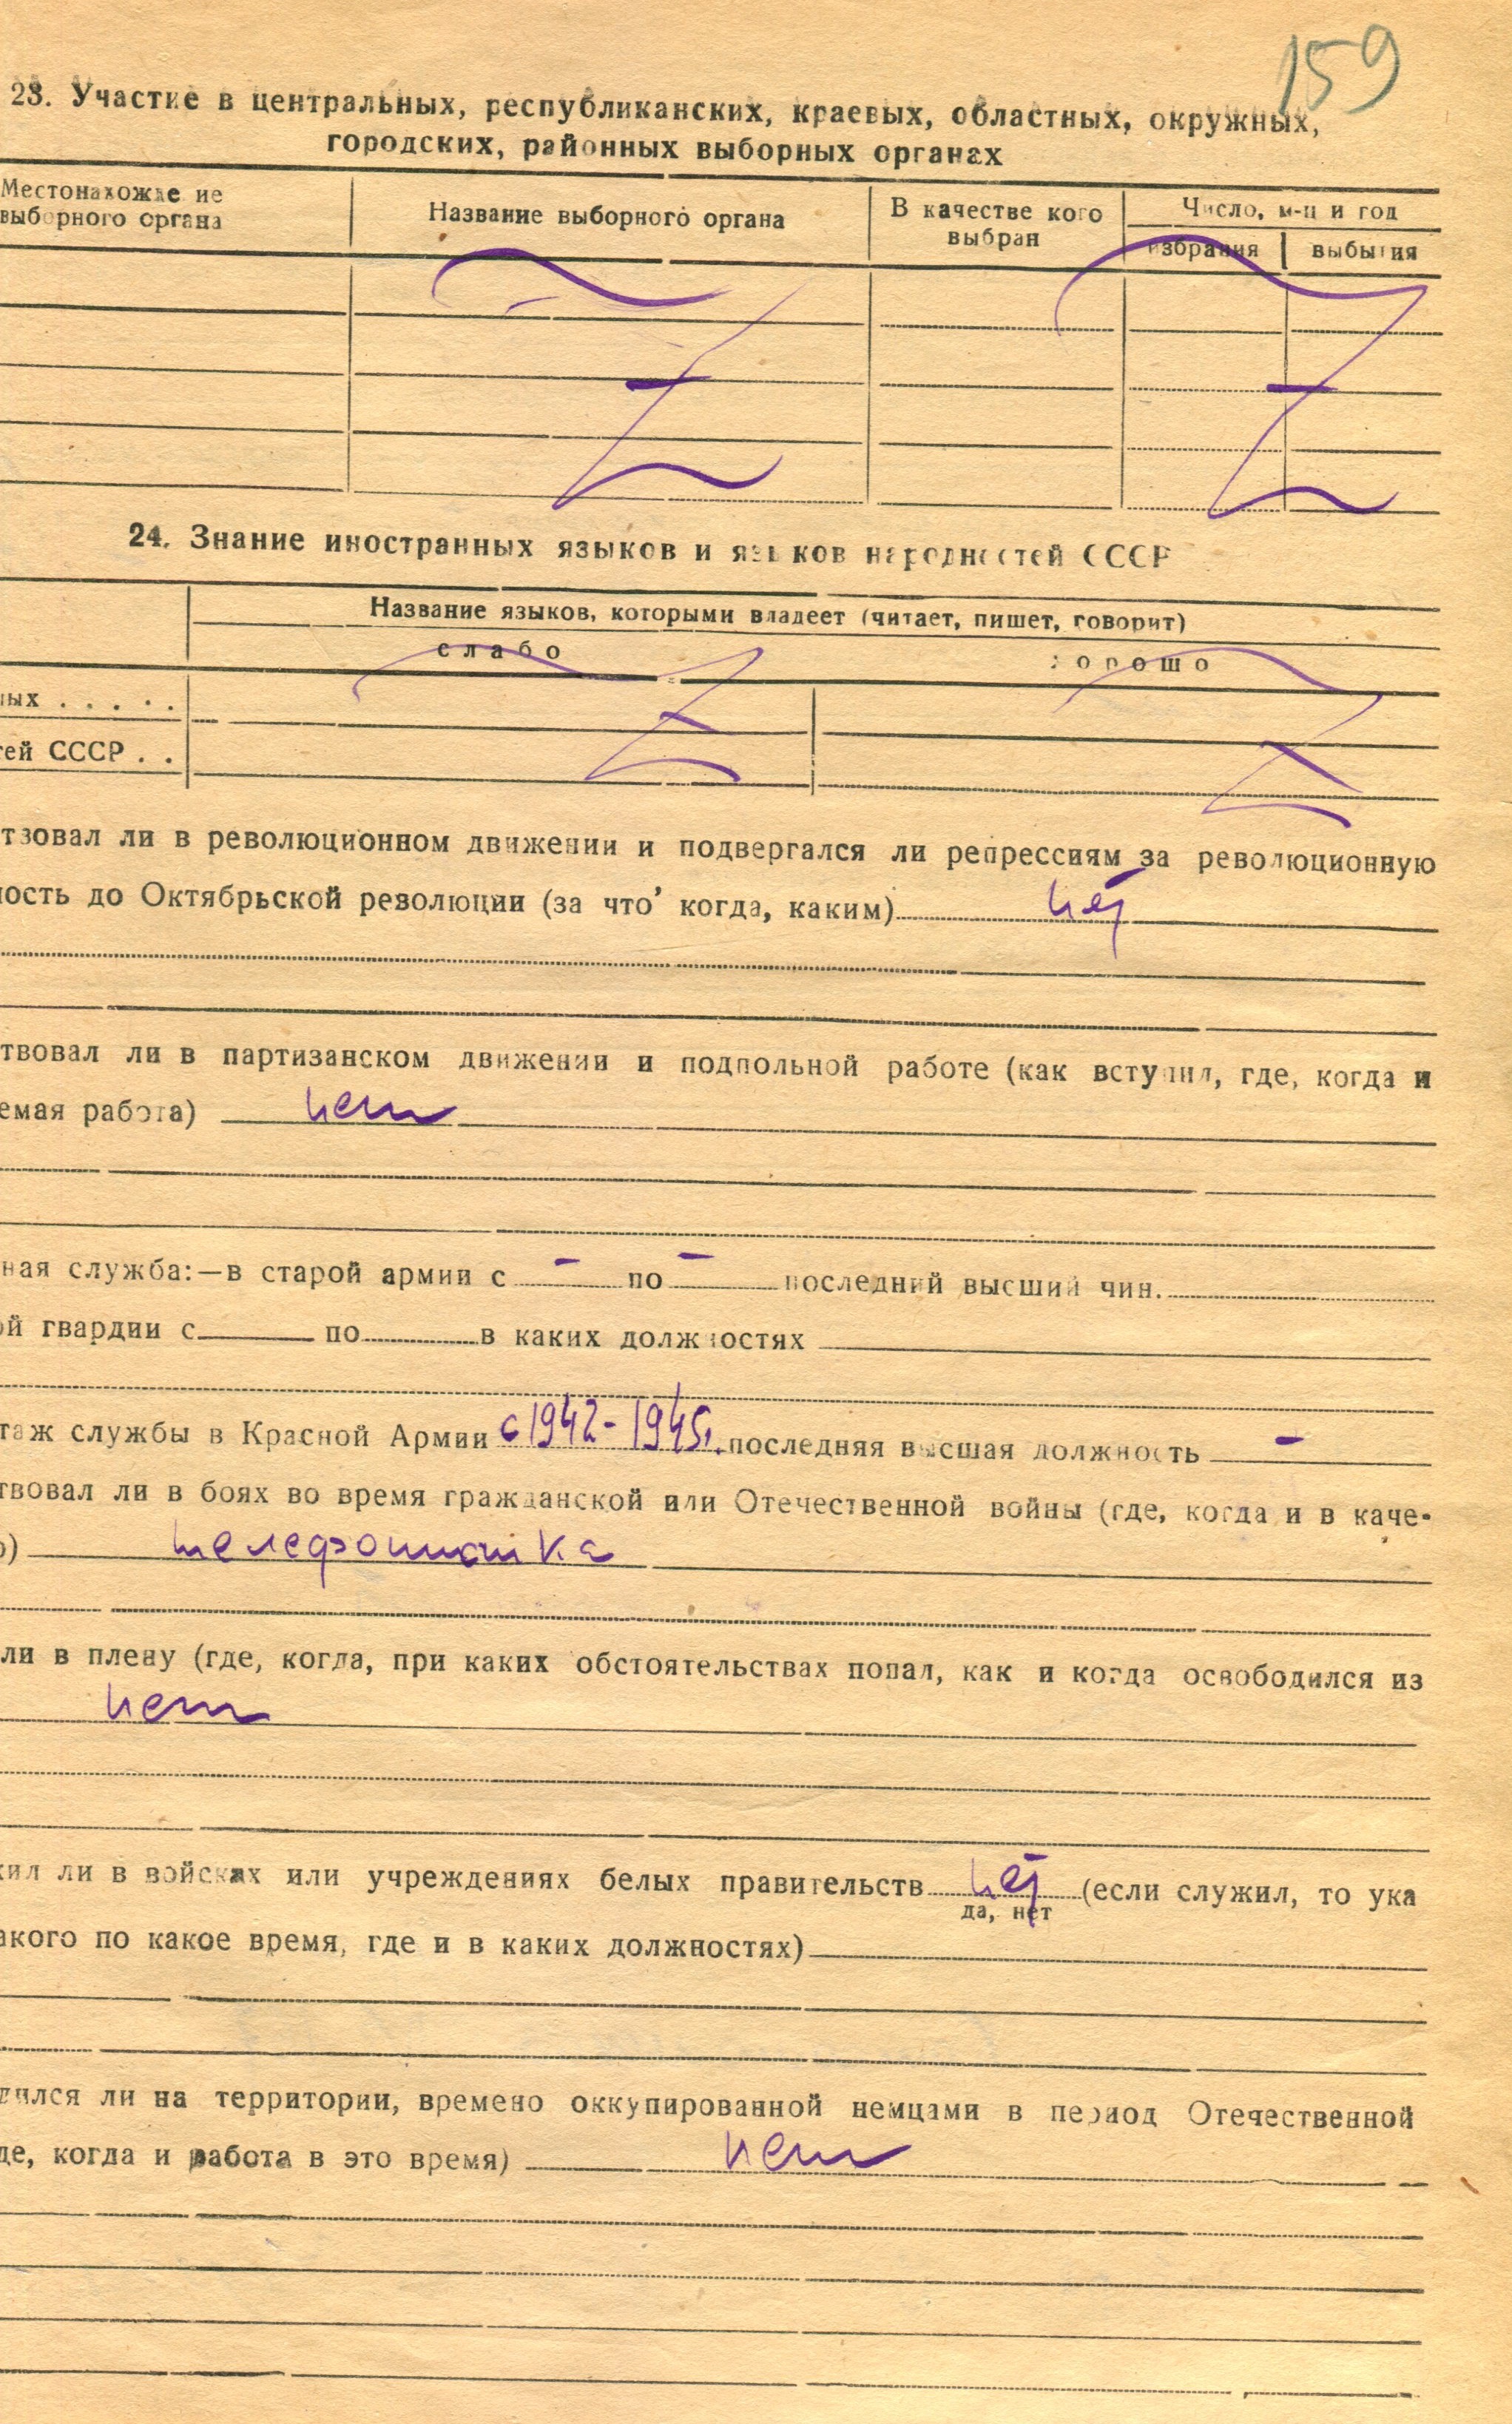 159
23. Участие в центральных, республиканских, краевых, областных, окружных,
городских, районных выборных органах
Местонахожде ие
выборного органа
Название выборного органа
В качестве кого
выбран
Число, м-ц и год
избрания
выбытия
24. Знание иностранных языков и языков народностей СССР
Название языков, которыми владеет (читает, пишет, говорит)
слабо
хорошо
ных . . . . .
тей СССР . .
твовал ли в революционном движении и подвергался ли репрессиям за революционную
ность до Октябрьской революции (за что, когда, каким) нет
твовал ли в партизанском движении и подпольной работе (как вступил, где, когда и
емая работа) нет
ная служба:—в старой армии с – по – последний высший чин.
ой гвардии с по в каких должностях
таж службы в Красной Армии с 1942-1945г. последняя высшая должность –
твовал ли в боях во время гражданской или Отечественной войны (где, когда и в каче-
о) телефонистка
ли в плену (где, когда, при каких обстоятельствах попал, как и когда освободился из
нет
жил ли в войсках или учреждениях белых правительств нет (если служил, то ука
да, нет
акого по какое время, где и в каких должностях)
дился ли на территории, времено оккупированной немцами в период Отечественной
де, когда и работа в это время) нет